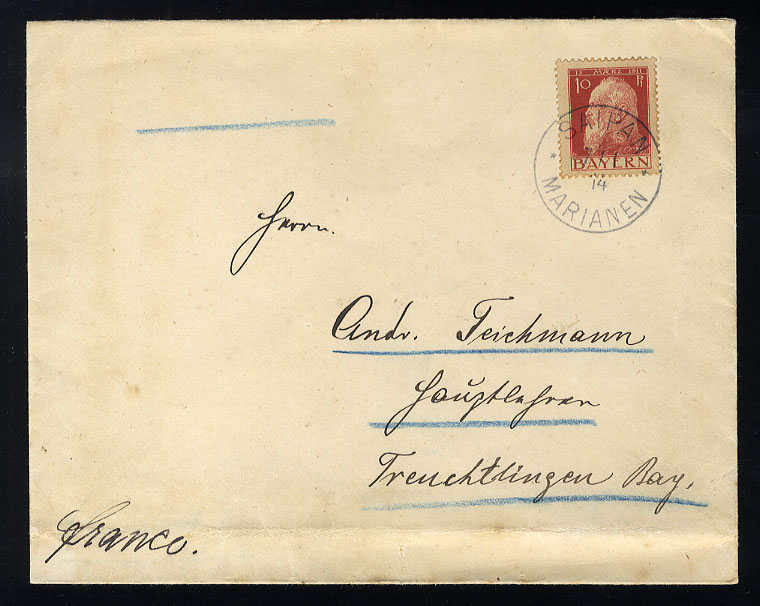 12. MÄRZ 1911
10 Pf
BAYERN
SAIPAN
14
MARIANEN
Herrn.
Andr. Teichmann
Hauptlehrer
Treuchtlingen Bay.
franco.